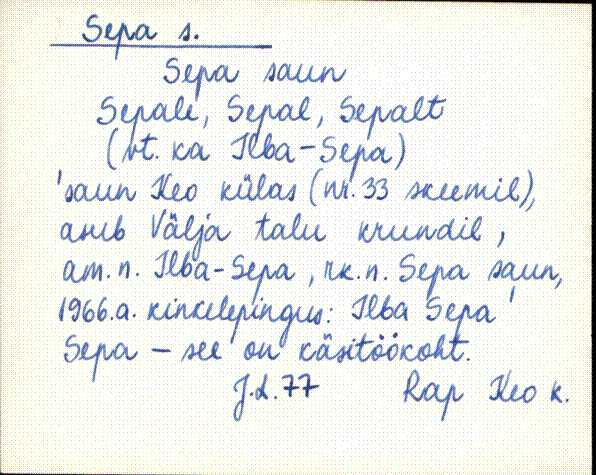 Sepa s.
Sepa saun
Sepale, Sepal, Sepalt
(vt. ka Ilba-Sepa)
'saun Keo külas (nr. 33 skeemil),
asub Välja talu krundil,
am. n. Ilba-Sepa, rk. n. Sepa saun,
1966.a. kinkelepingus: Ilba Sepa'
Sepa – see on käsitöökoht.
J.L. 77 Rap Keo k.